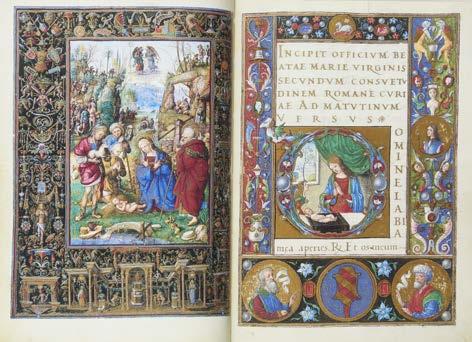 INCIPIT OFFICIUM BE
ATAE MARIE VIRGINIS
SECUNDUM CONSVETV
DINEM ROMANE CURI
AE AD MATVTINUM
VERSUS
DOMINE LABIA
mea aperies. R. Et os meum